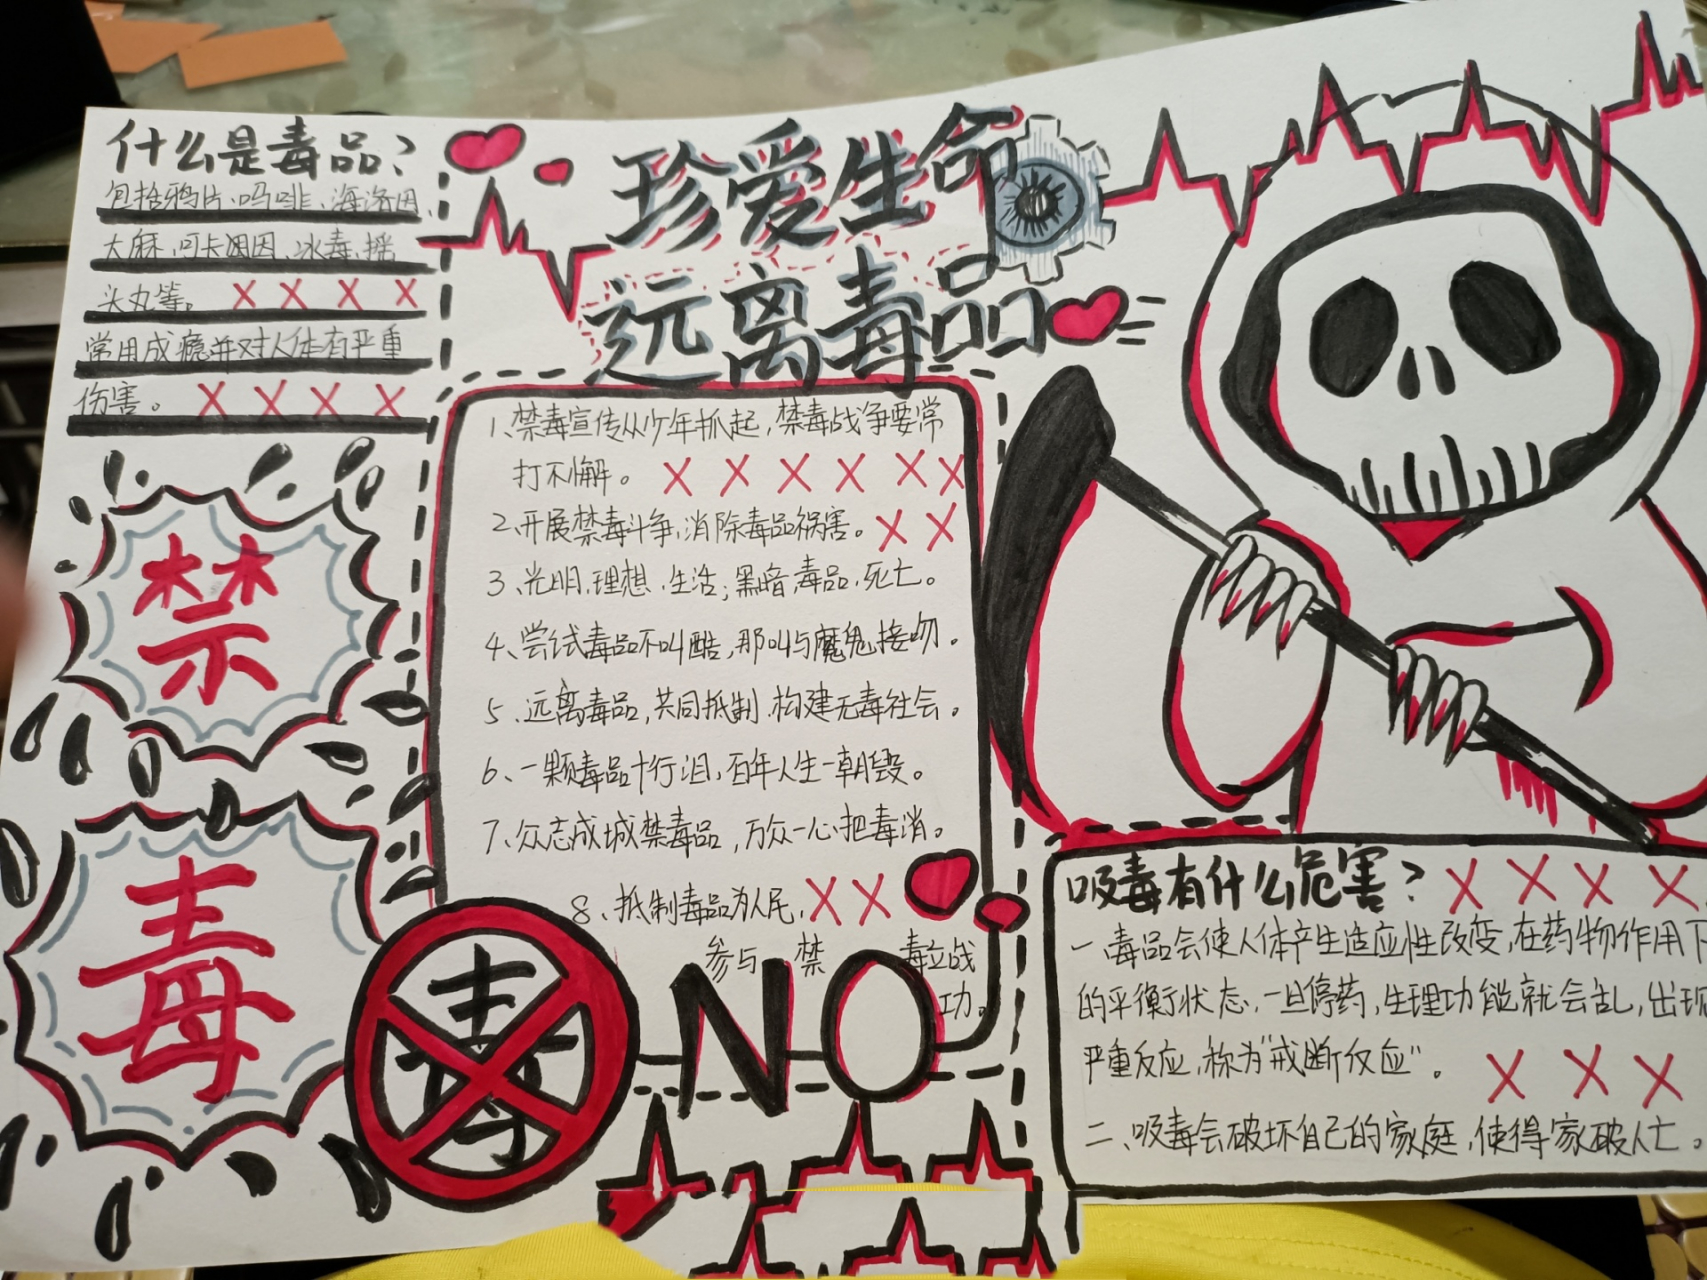 什么是毒品？
包括鸦片、吗啡、海洛因、
大麻、可卡因、冰毒、摇
头丸等。
常用成瘾并对人体有严重
伤害。
珍爱生命
远离毒品
禁
毒
1、禁毒宣传从少年抓起，禁毒战争要常
打不懈。
2、开展禁毒斗争，消除毒品祸害。
3、光明、理想、生活；黑暗、毒品、死亡。
4、尝试毒品不叫酷，那叫与魔鬼接吻。
5、远离毒品，共同抵制、构建无毒社会。
6、一颗毒品十行泪，百年人生一朝毁。
7、众志成城禁毒品，万众一心把毒消。
8、抵制毒品为人民，
参与禁毒立战
功。
毒
NO
吸毒有什么危害？
一、毒品会使人体产生适应性改变，在药物作用下
的平衡状态，一旦停药，生理功能就会乱，出现
严重反应，称为“戒断反应”。
二、吸毒会破坏自己的家庭，使得家破人亡。